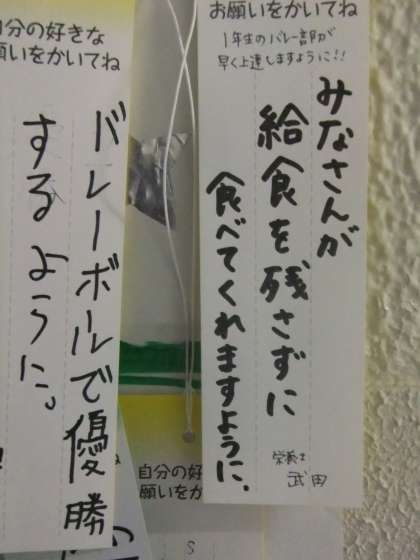 お願いをかいてね
1年生のバレー部が
早く上達しますように!!
みなさんが
給食を残さずに
食べてくれますように。
栄養士
武田
自分の好きな
願いをかいてね
バレーボールで優勝
するように。
自分の好
願いをか